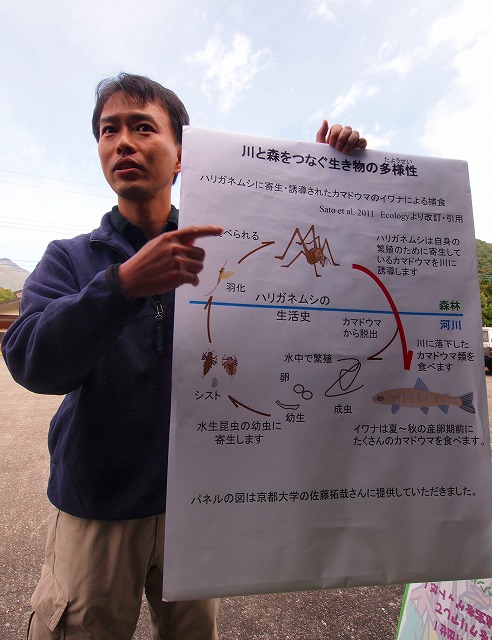 川と森をつなぐ生き物の多様性
たようせい
ハリガネムシに寄生・誘導されたカマドウマのイワナによる捕食
Sato et al. 2011 Ecologyより改訂・引用
べられる
ハリガネムシは自身の
繁殖のために寄生して
いるカマドウマを川に
誘導します
羽化
ハリガネムシの
生活史
森林
河川
カマドウマ
から脱出
川に落下した
カマドウマ類を
食べます
水中で繁殖
卵
シスト
幼生
成虫
水生昆虫の幼虫に
寄生します
イワナは夏~秋の産卵期前に
たくさんのカマドウマを食べます。
パネルの図は京都大学の佐藤拓哉さんに提供していただきました。